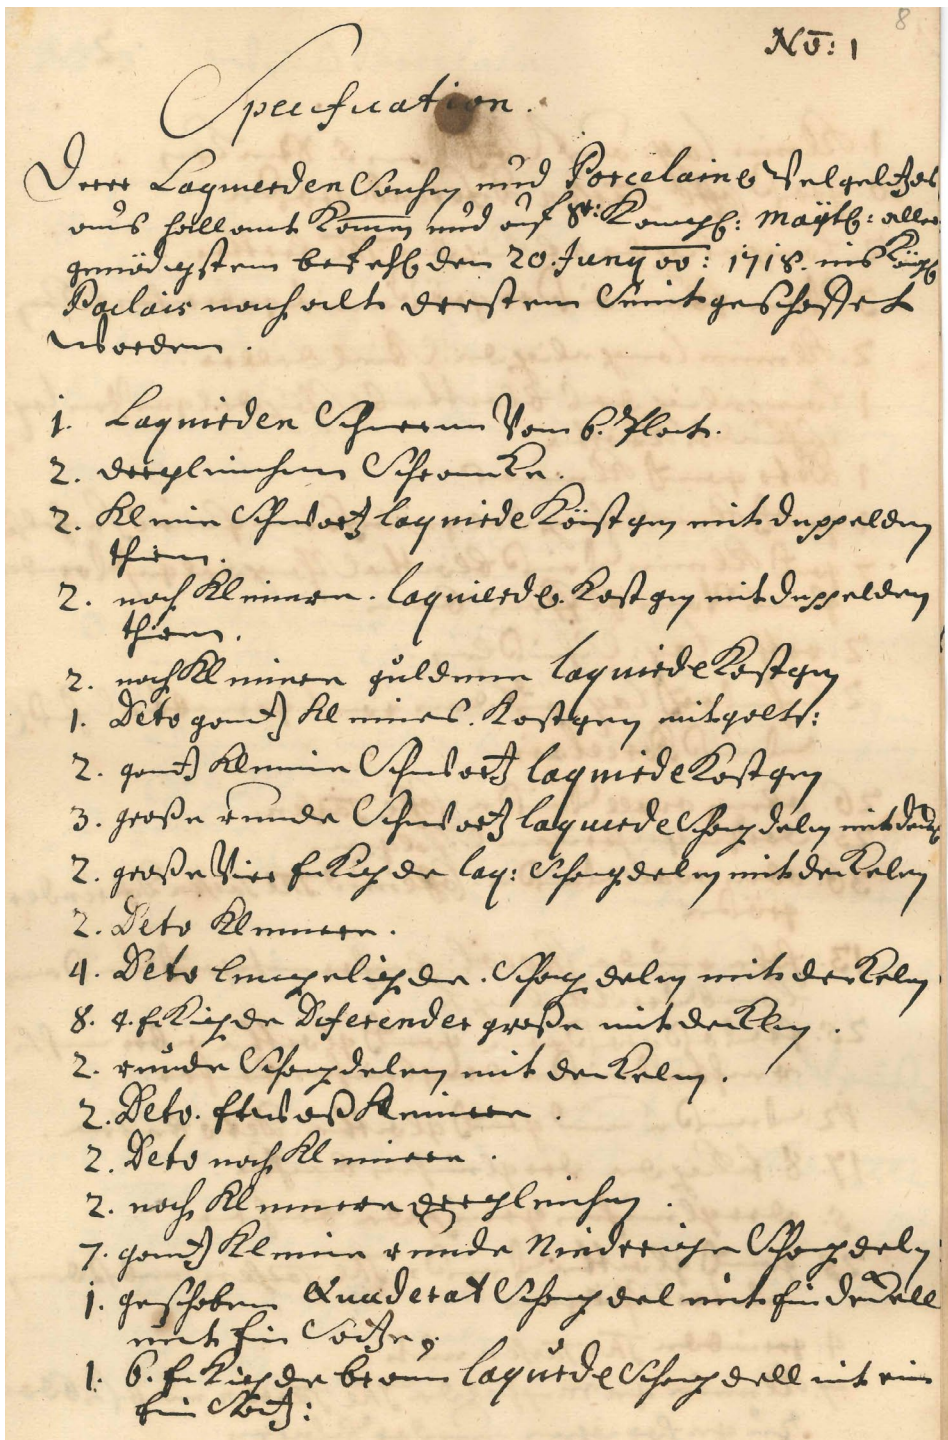 8
No: 1
Specification.
Derer Laquierden Sachen und Porcelaine Velgeltzes
aus Hollant Komen und auf Sr: Königl: Maÿtl: aller
genädigstem befehl den 20. Juny ao: 1718. ins König
Pallais nach alt dresten seint geschaffet
worden.
1. Laquierden Schierm Vom 6. Plat.
2. dergleinchen Schrancke.
2. Kleine Schwartz laquirde Kästgen mit duppelden
thiren.
2. noch Kleinere. laquierde. Kastgen mit duppelden
thiren.
2. noch Kleinere guldene laquirde Kastgen
1. Deto gantz Kleines. Kastgen mit golt:
2. gantz Kleine Schwartz laquirde Kastgen
3. große runde Schwartz laquirde Schagdelen mit
2. große Vier Eckigde laq: Schagdelen mit deckelen
2. Deto Kleinere.
4. Deto lengeligde. Schagdelen mit deckelen
8. 4. Eckigde Diferender große mit decklen.
2. runde Schagdelen mit deckelen.
2. Deto. Etwaß Kleinere.
2. Deto noch Kleinere.
2. noch Kleinere dergleinchen.
7. gantz Kleine runde Niedrige Schagdeln:
1. geschoben Quaderat Schagdel mit Ein deckell
mit Ein Satze,
1. 6. Eckigde braun laquirde Schagdell mit ein
Ein Satz: